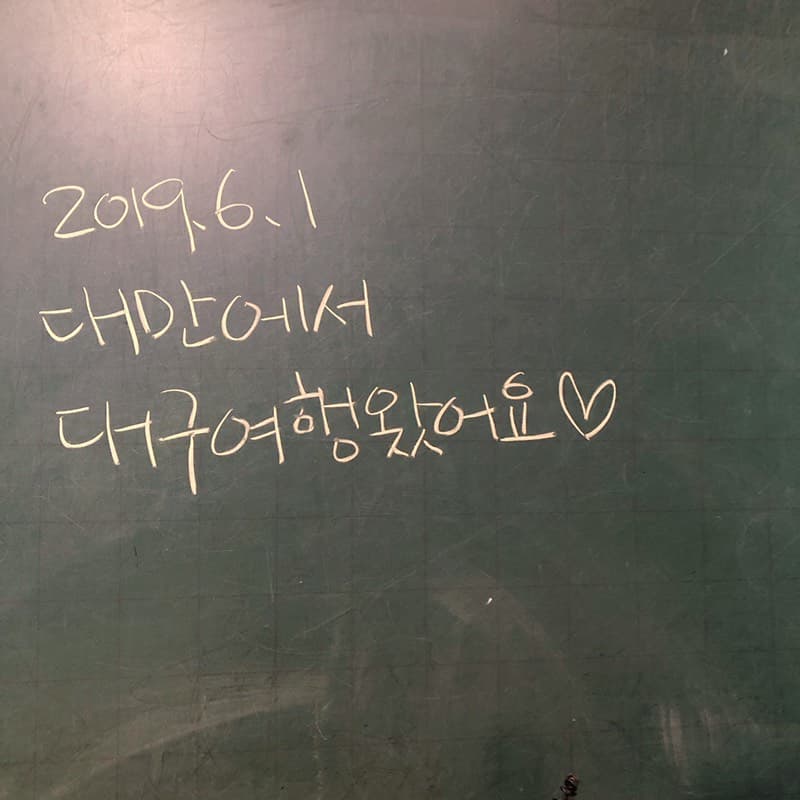 2019.6.1
대만에서
대구여행왔어요♡